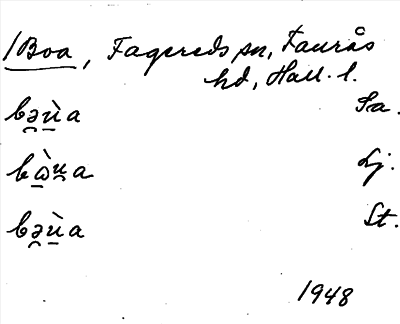 1 Boa, Fagereds sn, Faurås
hd, Hall. l.
bə̯ù̱a Sa.
bɷ̱̀u̯a Lj.
bə̯ù̱a St.
1948